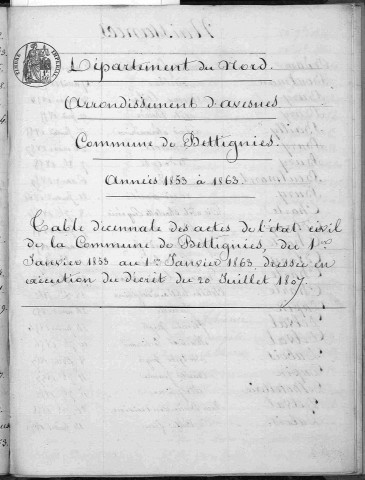 Département du Nord.
Arrondissement d'avesnes
Commune de Bettignies.
Années 1853 à 1863.
Table décennale des actes de l'état civil
de la Commune de Bettignies, du 1er
Janvier 1853 au 1er Janvier 1863, dressée en
exécution du décret du 20 Juillet 1807.